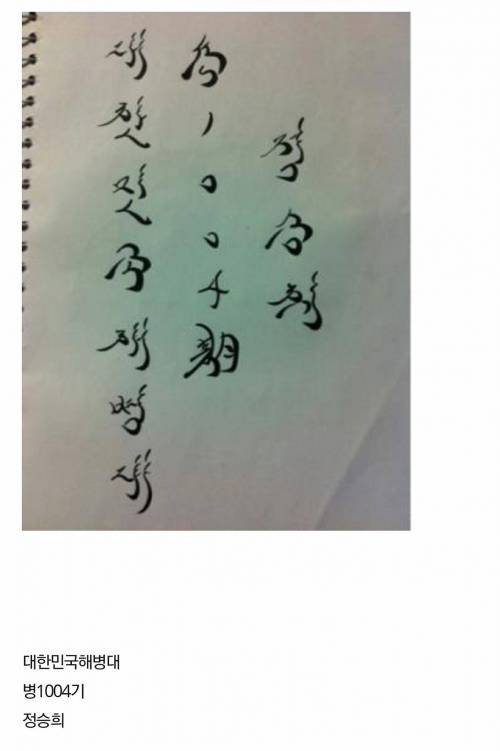 대한민국해병대
병1004期
정승희
대한민국해병대
병1004기
정승희